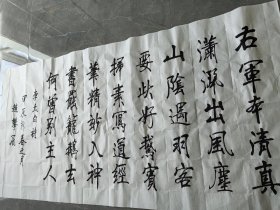 右軍本清真
瀟洒出風塵
山陰遇羽客
要此好鵝賓
掃素寫道經
筆精妙入神
書罷籠鵝去
何曾別主人
李太白詩
甲辰